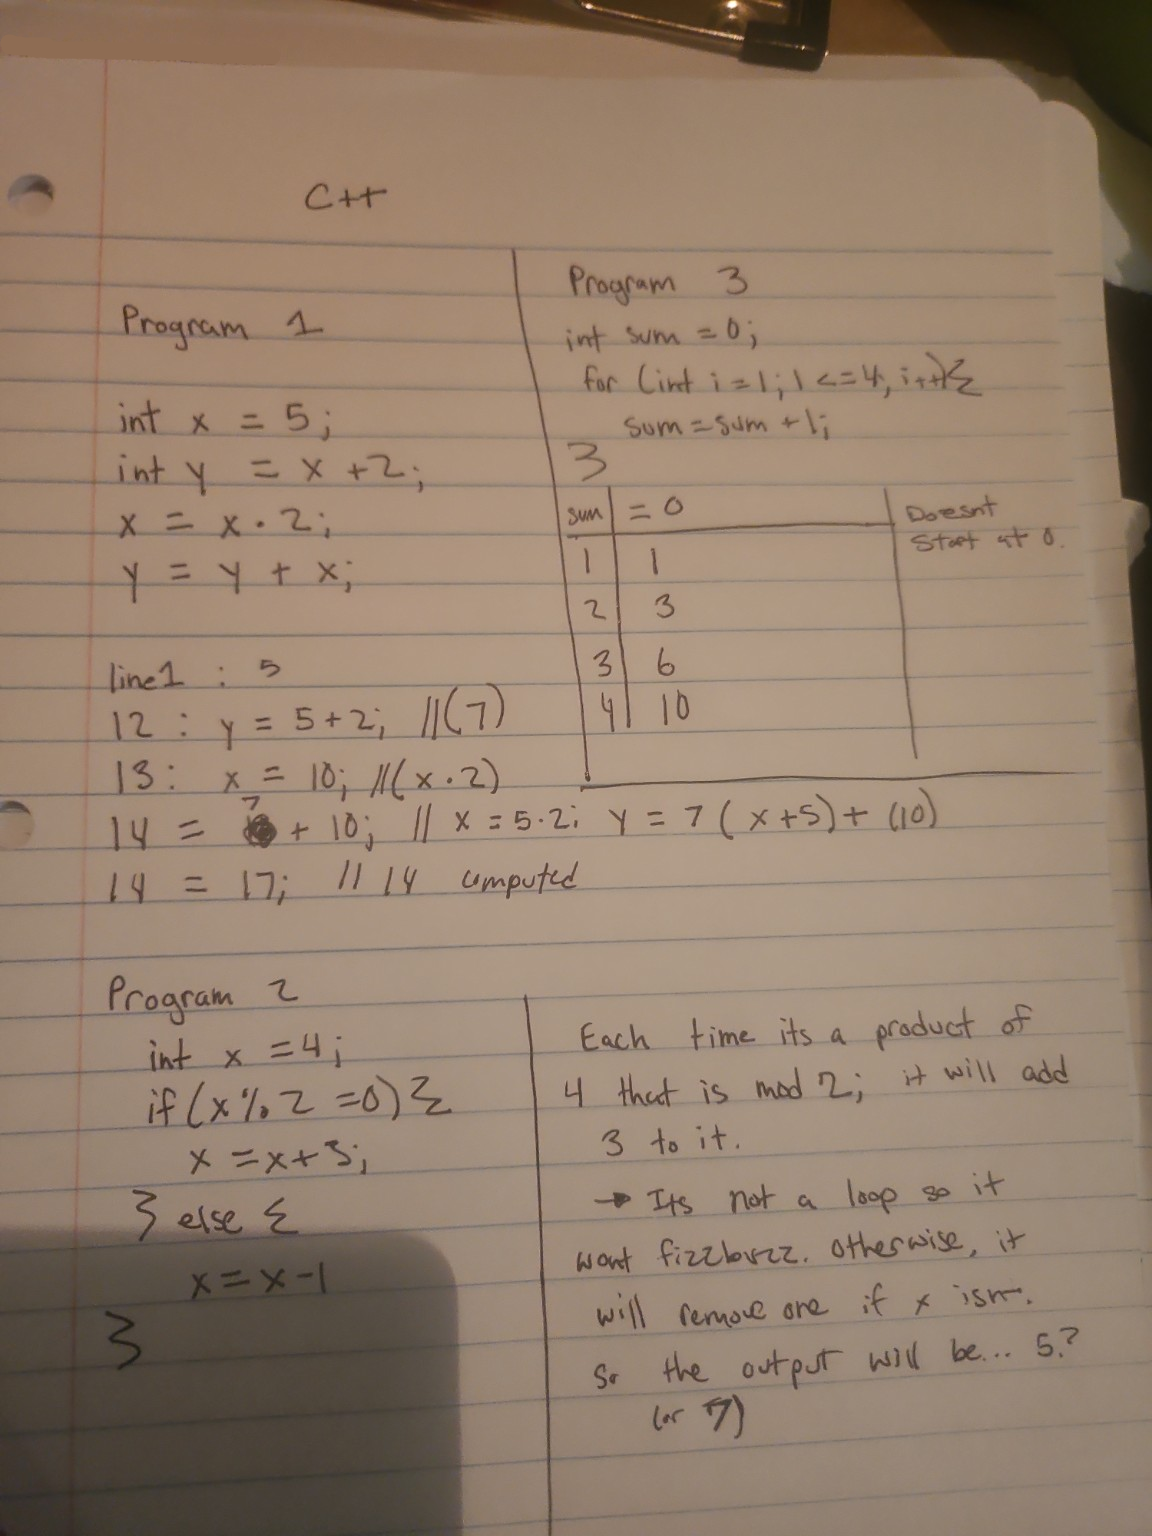 C++
Program 1
int x = 5;
int y = x + 2;
x = x · 2;
y = y + x;
line1 : 5
12 : y = 5+2; //(7)
13 : x = 10; //(x · 2)
14 = 7 + 10; // x = 5·2; y = 7 (x+5) + (10)
14 = 17; // 14 computed
Program 3
int sum = 0;
for (int i = 1; 1 <= 4; i++){
sum = sum + 1;
3
sum = 0
1 1
2 3
3 6
4 10
Doesnt
Start at 0.
Program 2
int x = 4;
if (x % 2 = 0) {
x = x + 3;
} else {
x = x - 1
}
Each time its a product of
4 that is mod 2; it will add
3 to it.
→ Its not a loop so it
wont fizzbuzz. otherwise, it
will remove one if x isnt.
So the output will be... 5.?
(or 7)